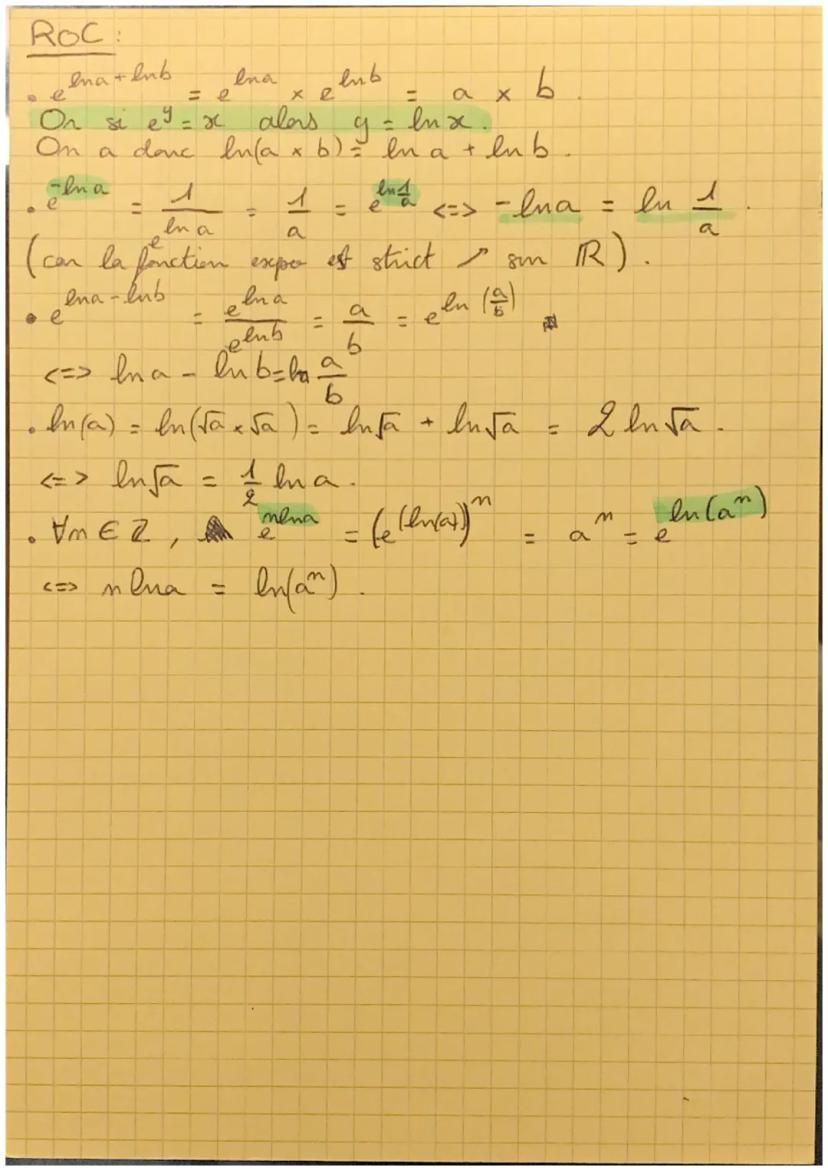 ROC :
• e^{ln a + ln b} = e^{ln a} × e^{ln b} = a × b.
Or si e^y = x alors y = ln x.
On a donc ln(a × b) = ln a + ln b.
• e^{-ln a} = 1/e^{ln a} = 1/a = e^{ln 1/a} <=> -ln a = ln 1/a.
(car la fonction expo est strict ↗ sur ℝ).
• e^{ln a - ln b} = e^{ln a}/e^{ln b} = a/b = e^{ln (a/b)}
<=> ln a - ln b = ln a/b
• ln(a) = ln(√a × √a) = ln √a + ln √a = 2 ln √a.
<=> ln √a = 1/2 ln a.
• ∀n ∈ ℤ, e^{n ln a} = (e^{(ln(a))})^n = a^n = e^{ln(a^n)}
<=> n ln a = ln(a^n).